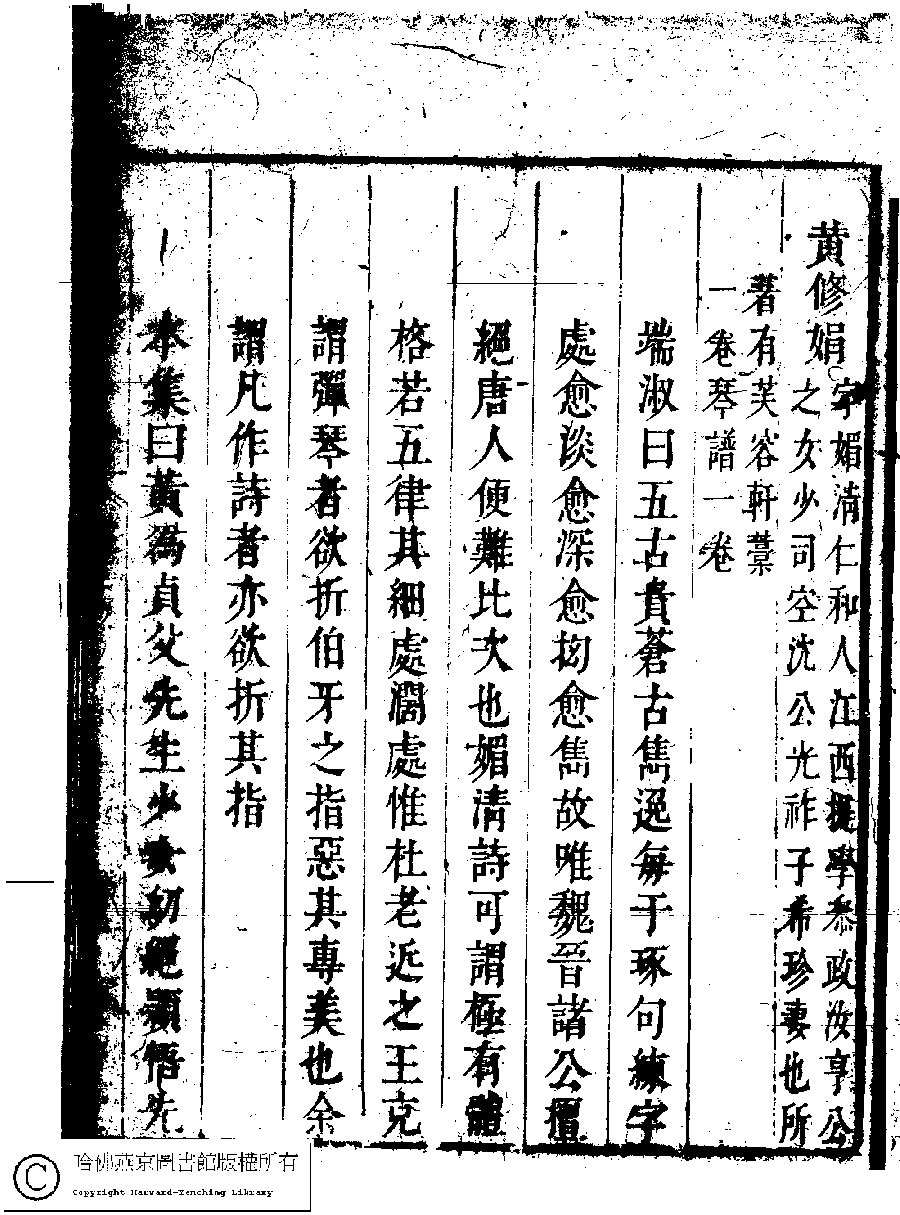 黃修娟字媚清仁和人江西提學叅政汝亨公
之女少司空沈公光祚子希珍妻也所
著有芙容軒藁
一卷琴譜一卷
端淑曰五古貴蒼古雋逸每于琢句練字
處愈淡愈深愈拗愈雋故唯魏晉諸公擅
絕唐人便難比次也媚清詩可謂極有體
格若五律其細處濶處惟杜老近之王克
謂彈琴者欲折伯牙之指惡其專美也余
謂凡作詩者亦欲折其指
本集曰黃為貞父先生少女幼絕頴悟先
哈佛燕京圖書館版權所有
Copyright Harvard-Yenching Library